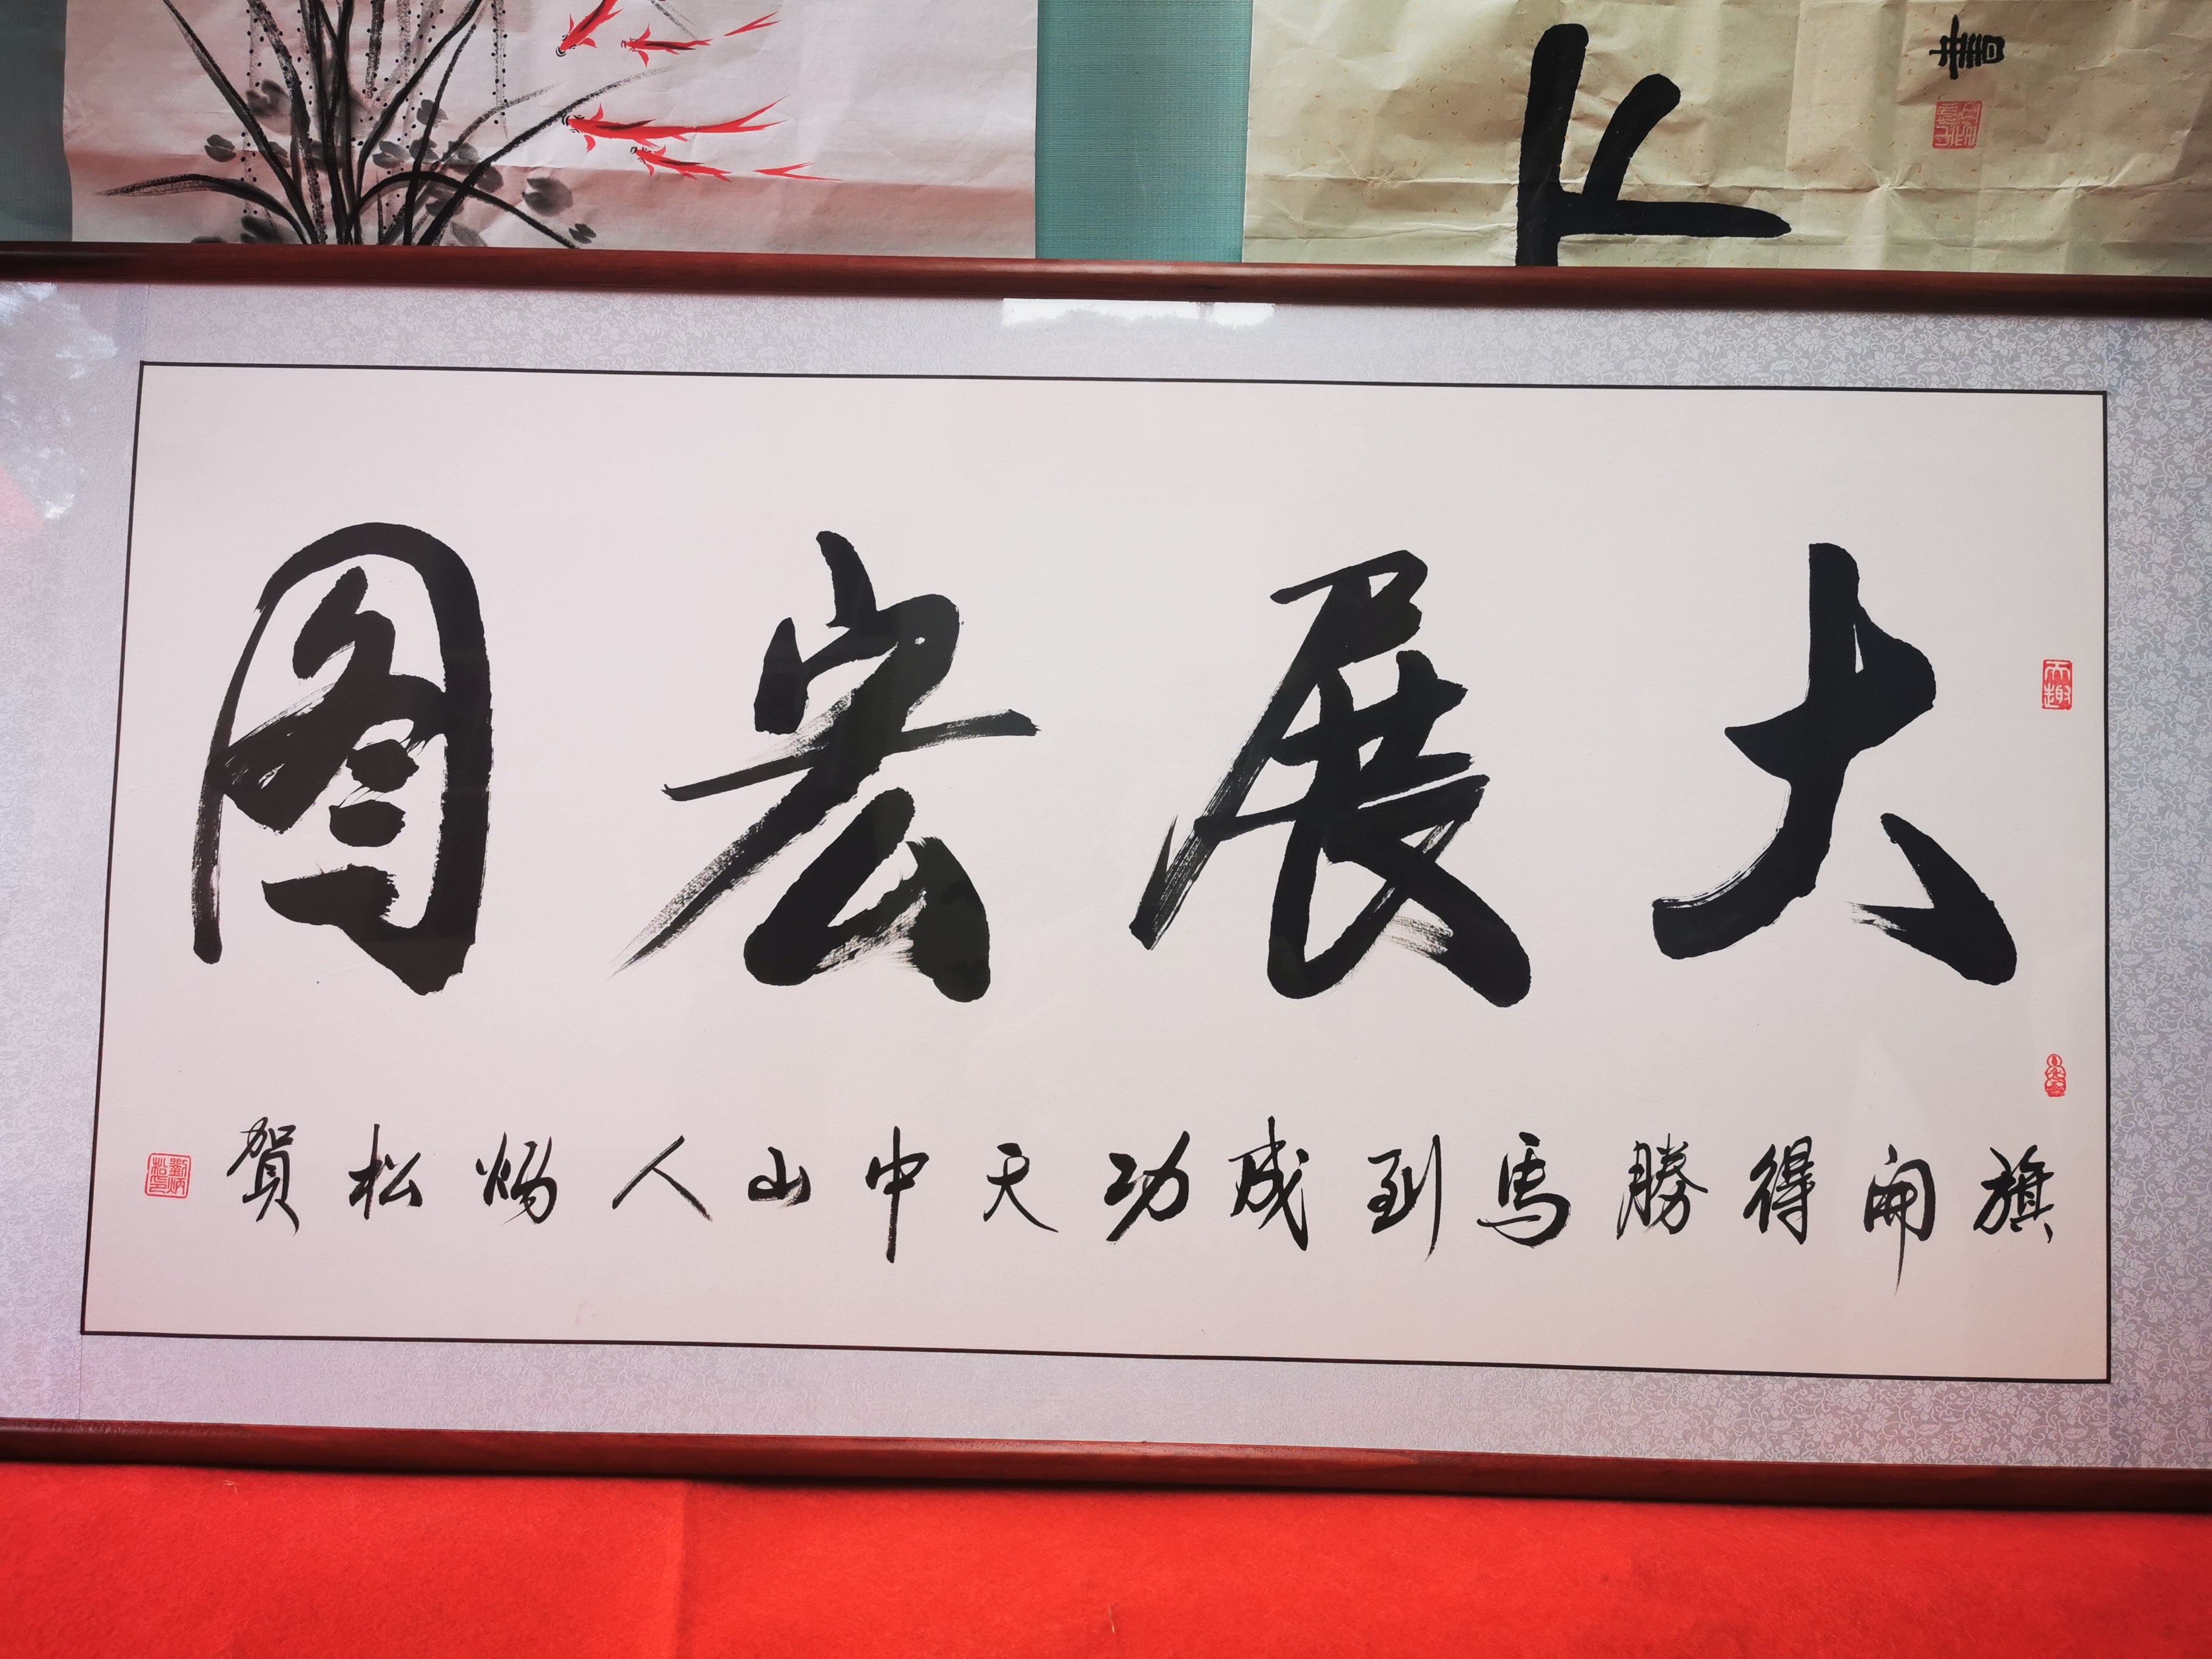 書
大展宏图
旗開得勝馬到成功天中山人炳松賀